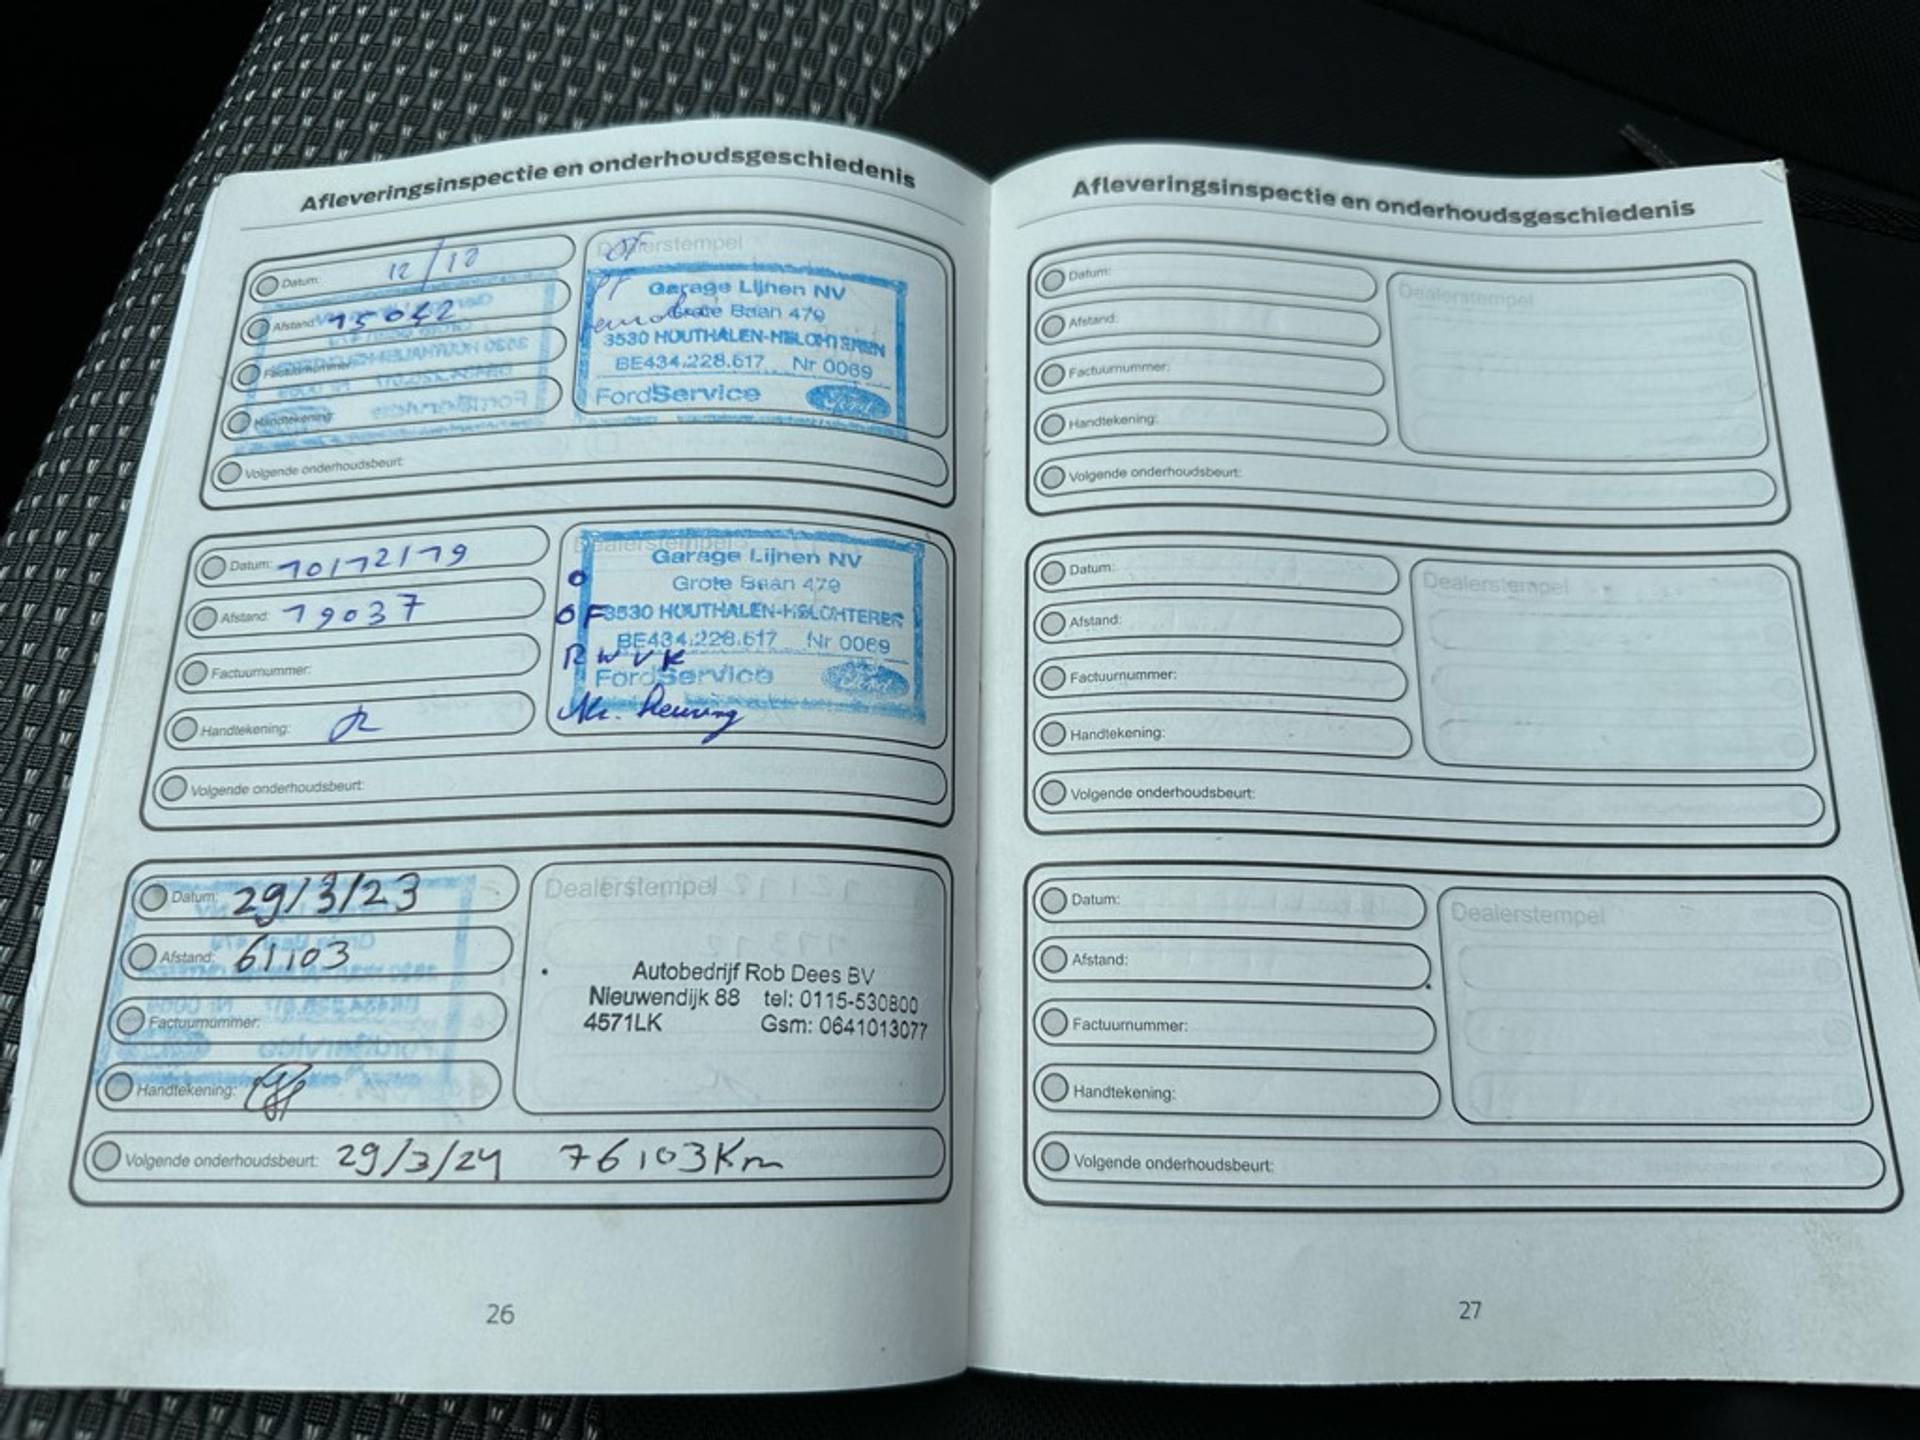 Afleveringsinspectie en onderhoudsgeschiedenis
Datum: 12/18
Dealerstempel
Garage Lijnen NV
Afstand: 15042
Grote Baan 479
3530 HOUTHALEN-HELCHTEREN
Factuurnummer:
BE434.228.617 Nr 0069
FordService Ford
Handtekening:
Volgende onderhoudsbeurt:
Datum: 10/12/19
Dealerstempel
Garage Lijnen NV
Grote Baan 479
Afstand: 19037
O
OF
3530 HOUTHALEN-HELCHTEREN
BE434.228.617 Nr 0069
RWVK
Factuurnummer:
FordService
Handtekening:
Volgende onderhoudsbeurt:
Datum: 29/3/23
Dealerstempel
Afstand: 61103
Autobedrijf Rob Dees BV
Nieuwendijk 88 tel: 0115-530800
4571LK Gsm: 0641013077
Factuurnummer:
Handtekening:
Volgende onderhoudsbeurt: 29/3/24 76103Km
26
Afleveringsinspectie en onderhoudsgeschiedenis
Datum:
Dealerstempel
Afstand:
Factuurnummer:
Handtekening:
Volgende onderhoudsbeurt:
Datum:
Dealerstempel
Afstand:
Factuurnummer:
Handtekening:
Volgende onderhoudsbeurt:
Datum:
Dealerstempel
Afstand:
Factuurnummer:
Handtekening:
Volgende onderhoudsbeurt:
27